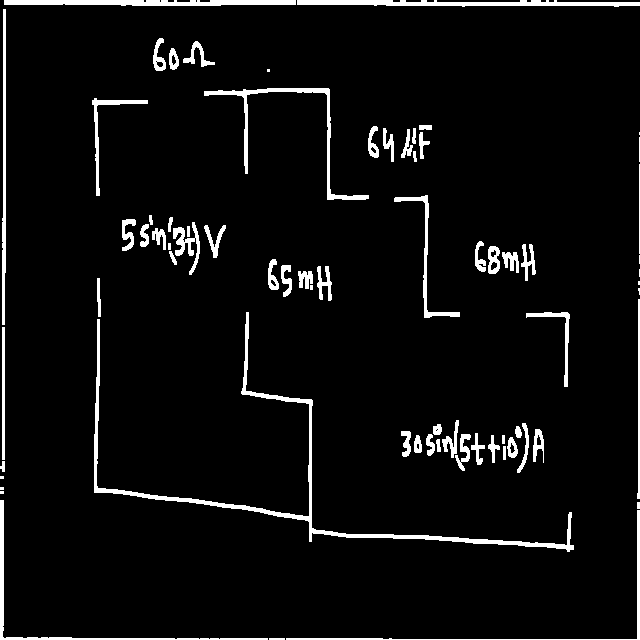 60Ω
64 μF
5 sin(3t) V
65 mH
68 mH
30 sin(5t+10°) A